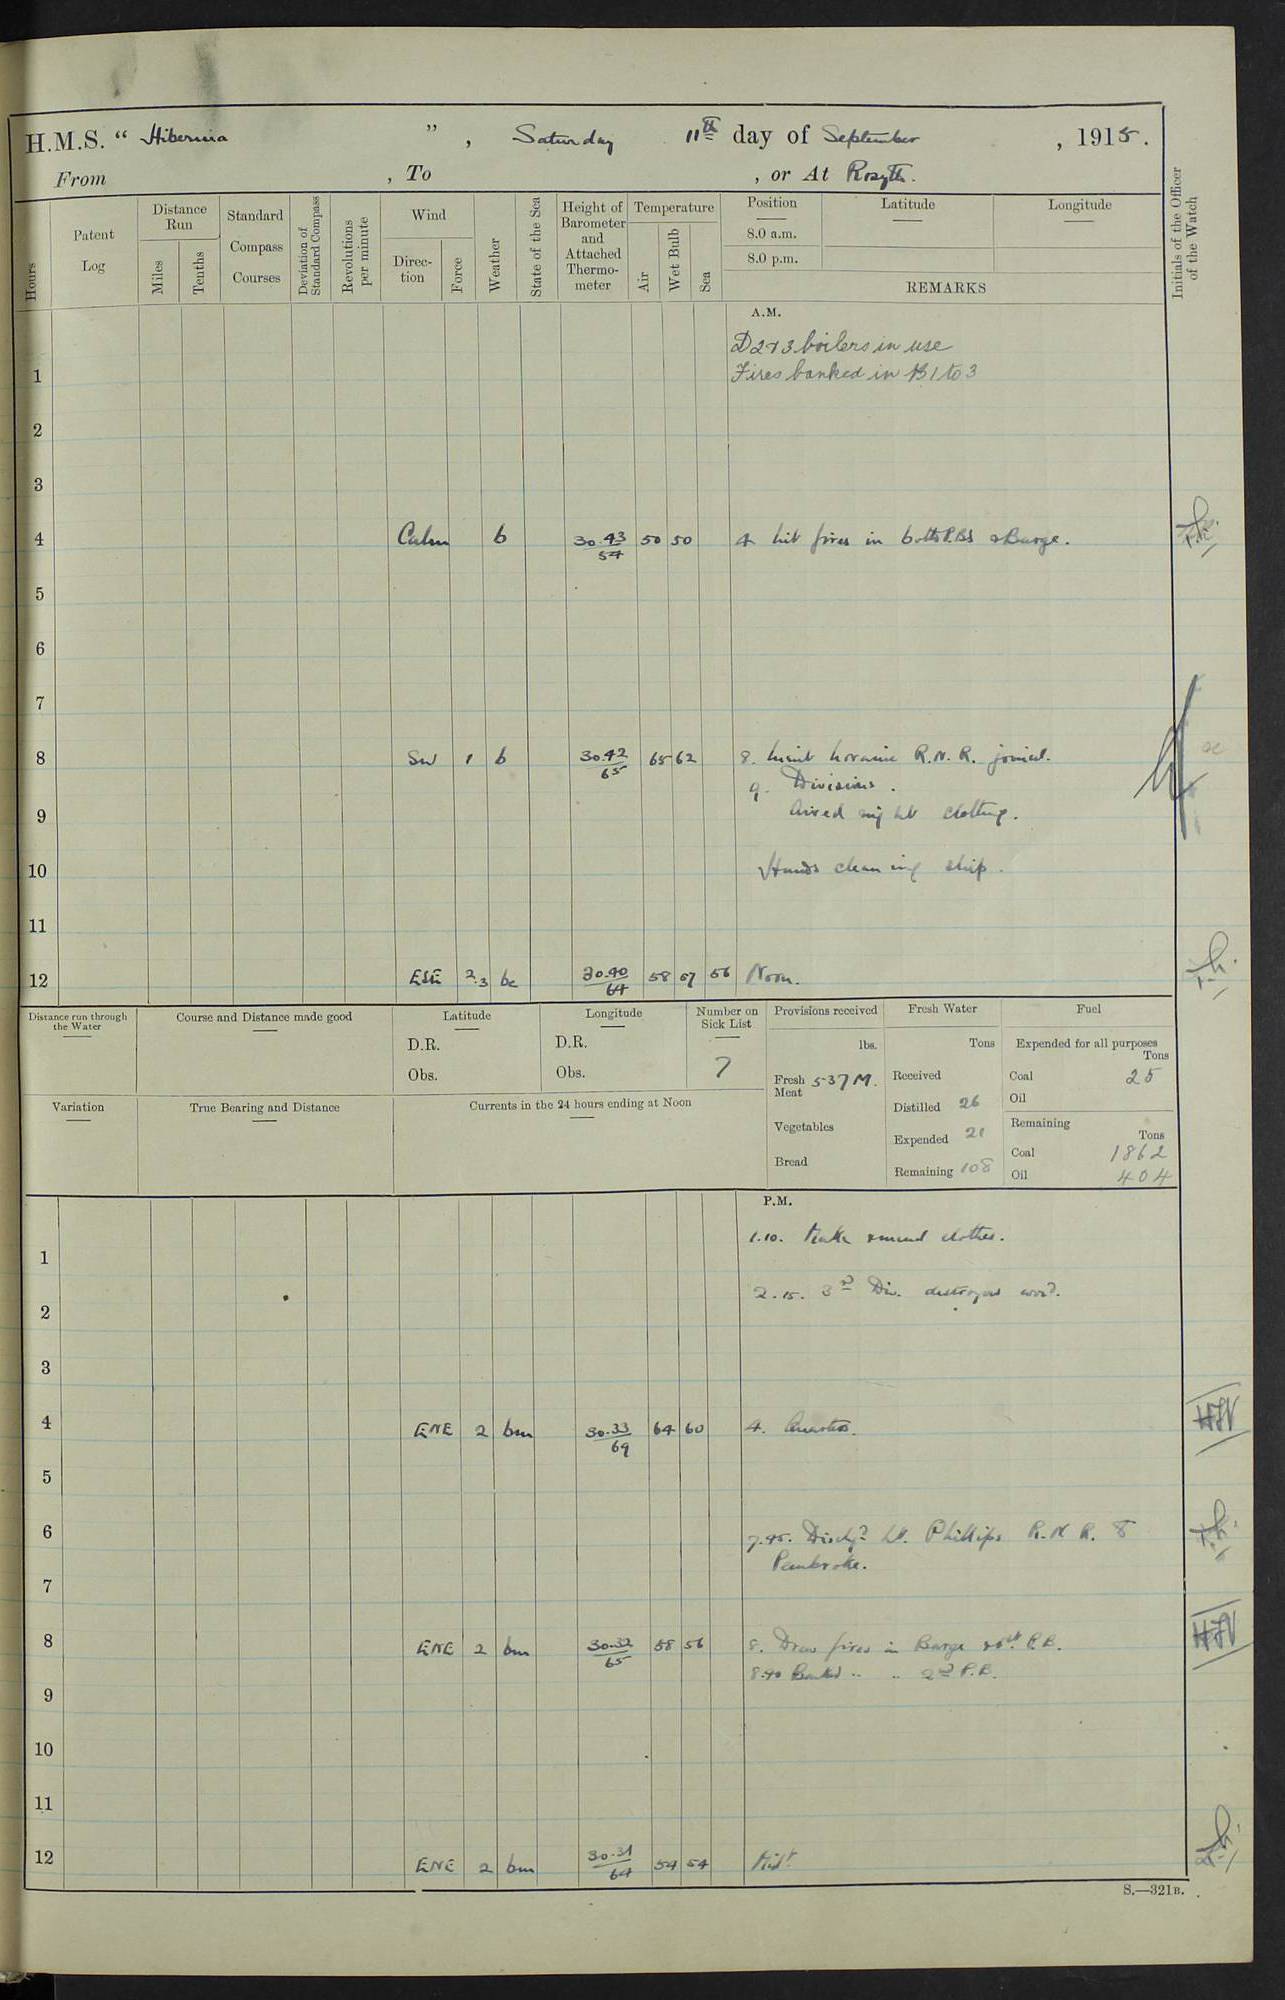 H.M.S. " Hibernia " , Saturday 11th day of September , 1915.
From , To , or At Rosyth.
Hours
Patent Log
Distance Run
Miles
Tenths
Standard Compass Courses
Deviation of Standard Compass
Revolutions per minute
Wind
Direction
Force
Weather
State of the Sea
Height of Barometer and Attached Thermometer
Temperature
Air
Wet Bulb
Sea
Position
8.0 a.m.
8.0 p.m.
Latitude
Longitude
REMARKS
Initials of the Officer of the Watch
A.M.
D2&3 boilers in use
1 Fires banked in B1 to 3
2
3
4 Calm b 30.43/54 50 50 4 Lit fires in both P.Bs & Barge.
5
6
7
8 SW 1 b 30.42/65 65 62 8. R.N.R. joined.
9. Divisions.
9 Aired night clothing.
10 Hands cleaning ship.
11
12 ESE 2.3 bc 30.40/64 58 57 56 Noon.
Distance run through the Water
Course and Distance made good
Latitude
D.R.
Obs.
Longitude
D.R.
Obs.
Number on Sick List
7
Provisions received
lbs.
Fresh Meat 537 M.
Vegetables
Bread
Fresh Water
Tons
Received
Distilled 26
Expended 21
Remaining 108
Fuel
Expended for all purposes
Tons
Coal 25
Oil
Remaining
Tons
Coal 1862
Oil 404
Variation
True Bearing and Distance
Currents in the 24 hours ending at Noon
P.M.
1.10. Make & mend clothes.
1
2.15. 3rd Div. destroyers
2
3
4 ENE 2 bm 30.33/69 64 60 4. Quarters.
5
6 7.45. Dischd Lt. Phillips R.N.R. to
Pembroke.
7
8 ENE 2 bm 30.32/65 58 56 8. Drew fires in Barge & 1st P.B.
8.40 Banked " " 2nd P.B.
9
10
11
12 ENE 2 bm 30.31/64 54 54 Midt
S.—321B.